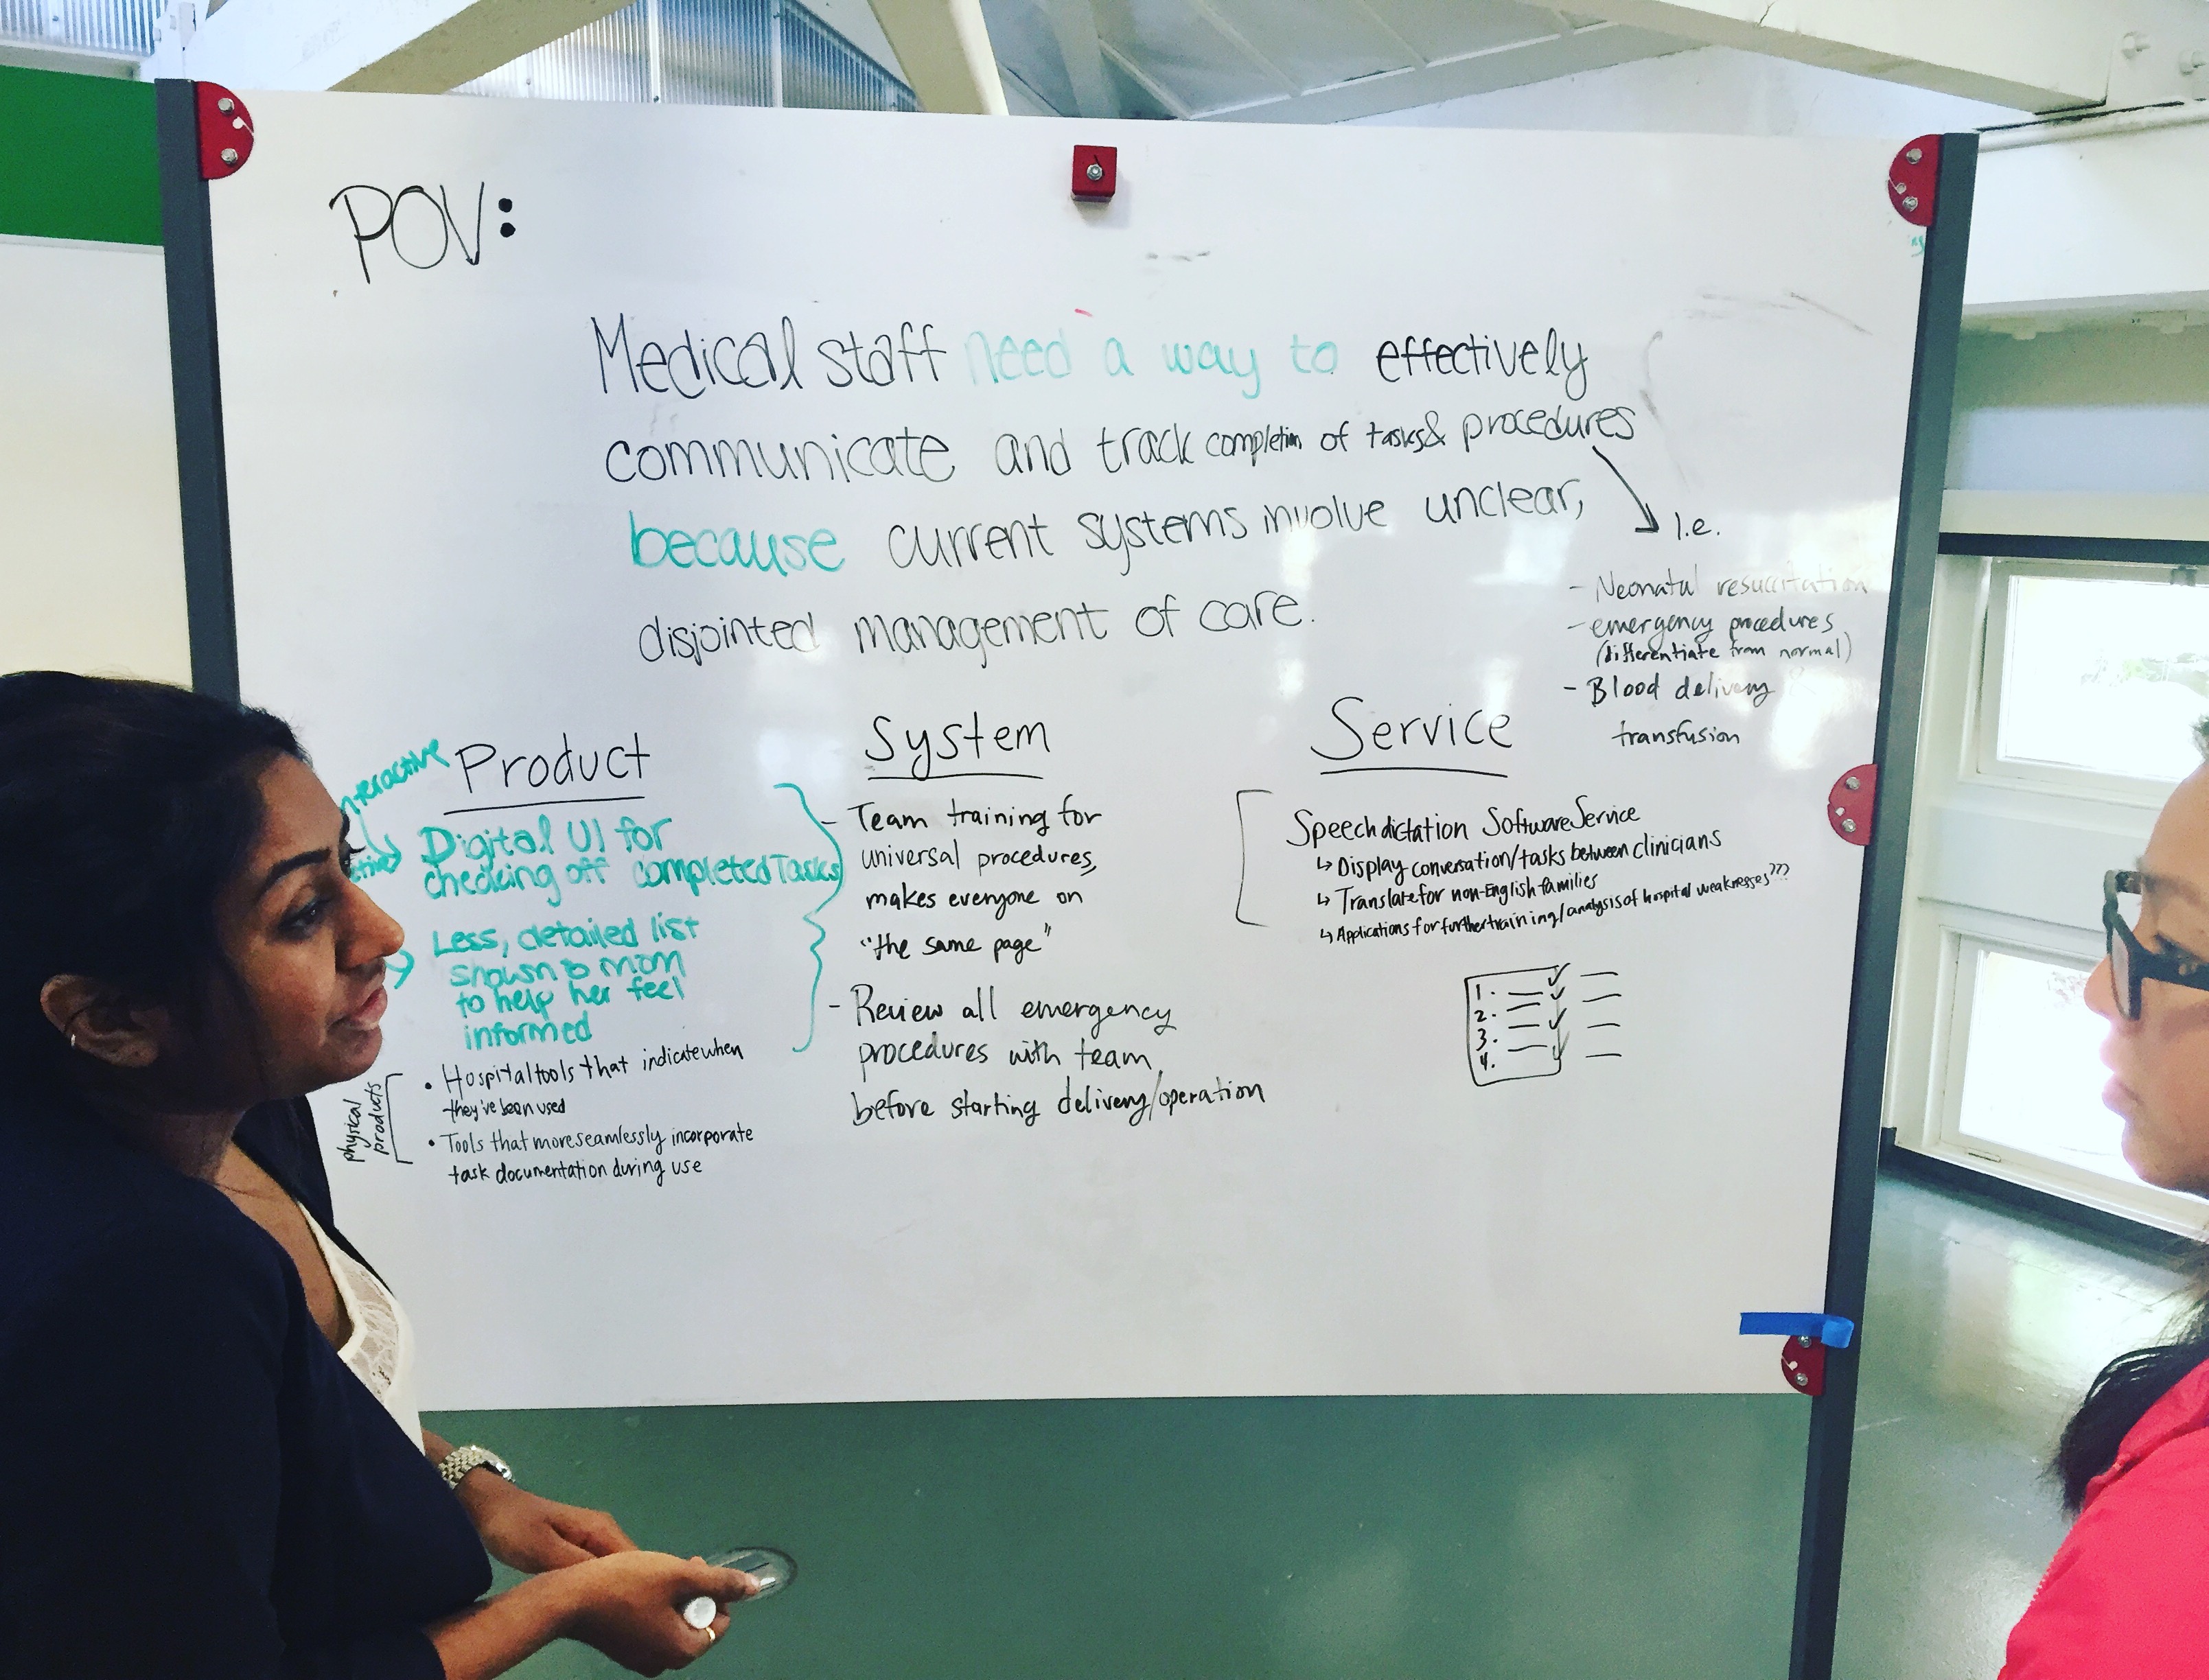 POV:
Medical staff need a way to effectively
communicate and track completion of tasks & procedures
because current systems involve unclear,
disjointed management of care.
I.e.
- Neonatal resuccitation
- emergency procedures
(differentiate from normal)
- Blood delivery &
transfusion
Product
Digital UI for
checking off completed Tasks
Less, detailed list
shown to mom
to help her feel
informed
physical
products
• Hospital tools that indicate when
they've been used
• Tools that more seamlessly incorporate
task documentation during use
System
- Team training for
universal procedures,
makes everyone on
"the same page"
- Review all emergency
procedures with team
before starting delivery/operation
Service
Speech dictation Software Service
↳ Display conversation/tasks between clinicians
↳ Translate for non-English families
↳ Applications for further training/analysis of hospital weaknesses???
1.
2.
3.
4.